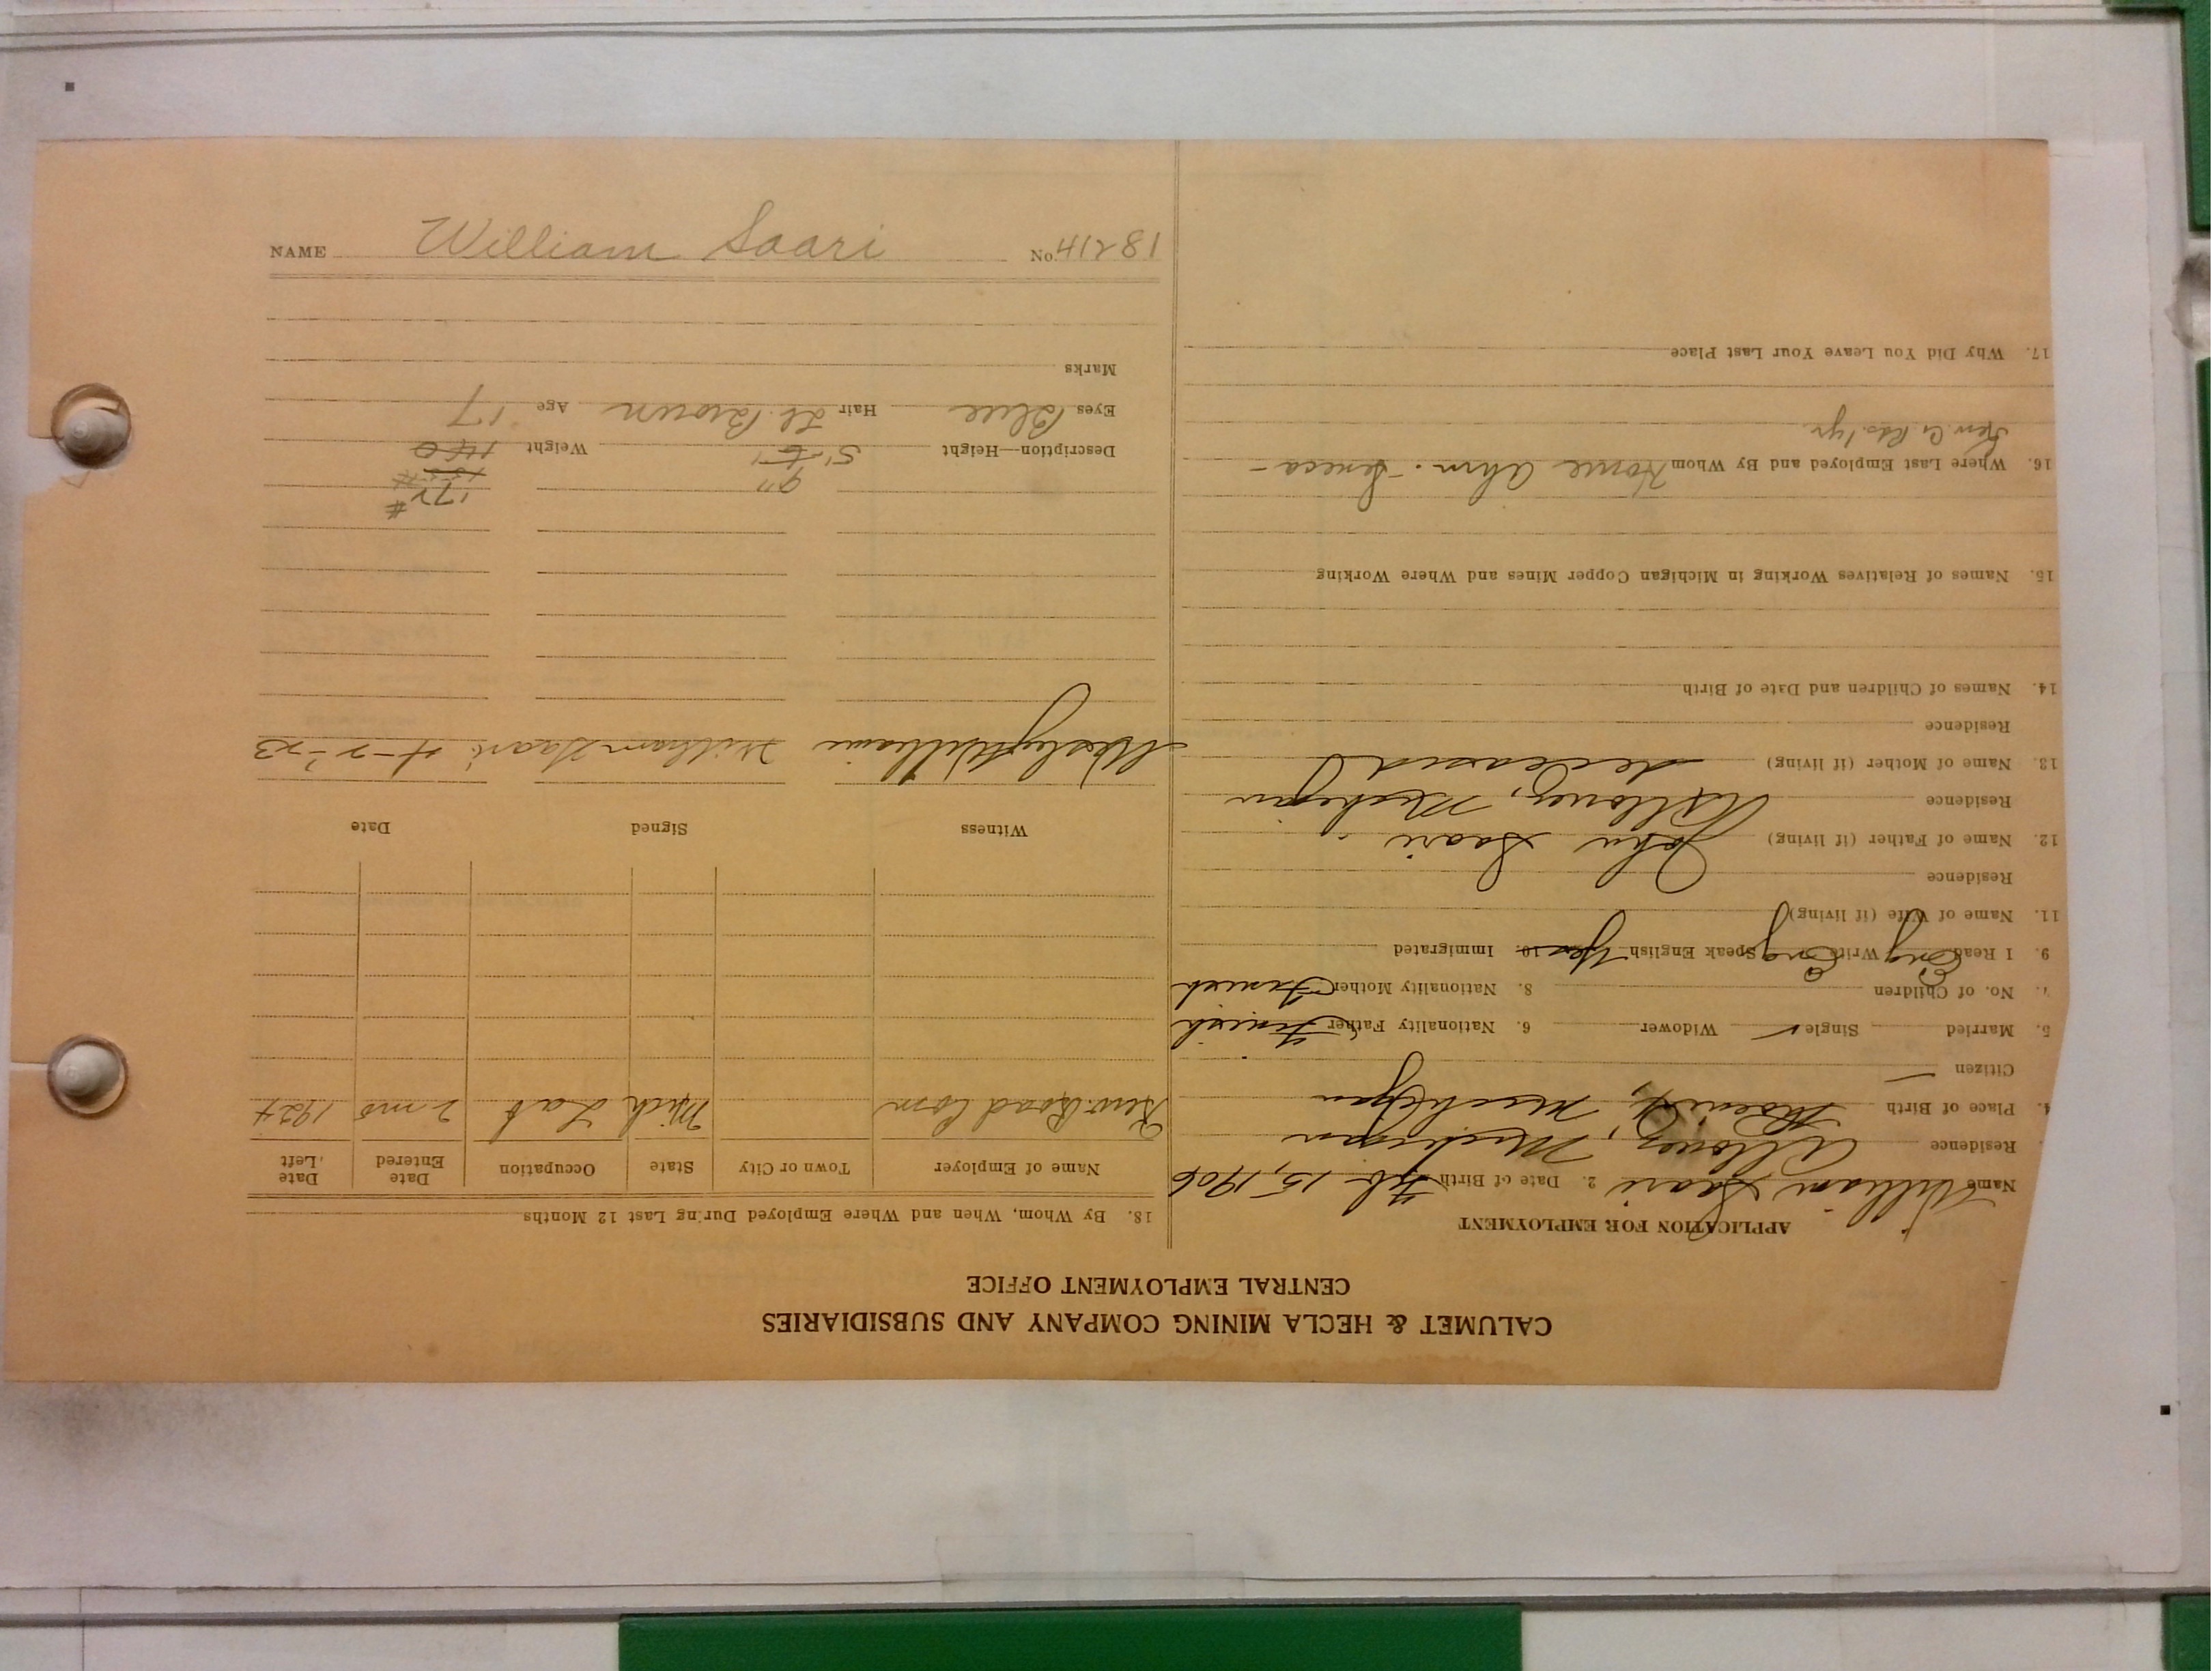 CALUMET & HECLA MINING COMPANY AND SUBSIDIARIES
CENTRAL EMPLOYMENT OFFICE
APPLICATION FOR EMPLOYMENT
Name William Saari 2. Date of Birth Feb 15, 1906
Residence Allouez, Michigan
4. Place of Birth Michigan
Citizen —
5. Married Single ✓ Widower 6. Nationality Father Finish
7. No. of Children 8. Nationality Mother Finish
9. I Read Eng Write Eng Speak English Yes 10. Immigrated
11. Name of Wife (if living)
Residence
12. Name of Father (if living) John Saari
Residence Allouez, Michigan
13. Name of Mother (if living) deceased
Residence
14. Names of Children and Date of Birth
15. Names of Relatives Working in Michigan Copper Mines and Where Working
16. Where Last Employed and By Whom Home Ahm. - Seneca -
Kew. Co Rds. 1 yr.
17. Why Did You Leave Your Last Place
18. By Whom, When and Where Employed During Last 12 Months
Name of Employer Town or City State Occupation Date Entered Date Left
Kew. Road Com Mich Lab 2 mo 1924
Witness Signed Date
Wesley Williams William Saari 4-2-23
172#
9"
Description—Height 5' 6" Weight 140
Eyes Blue Hair Lt. Brown Age 17
Marks
NAME William Saari No. 41281